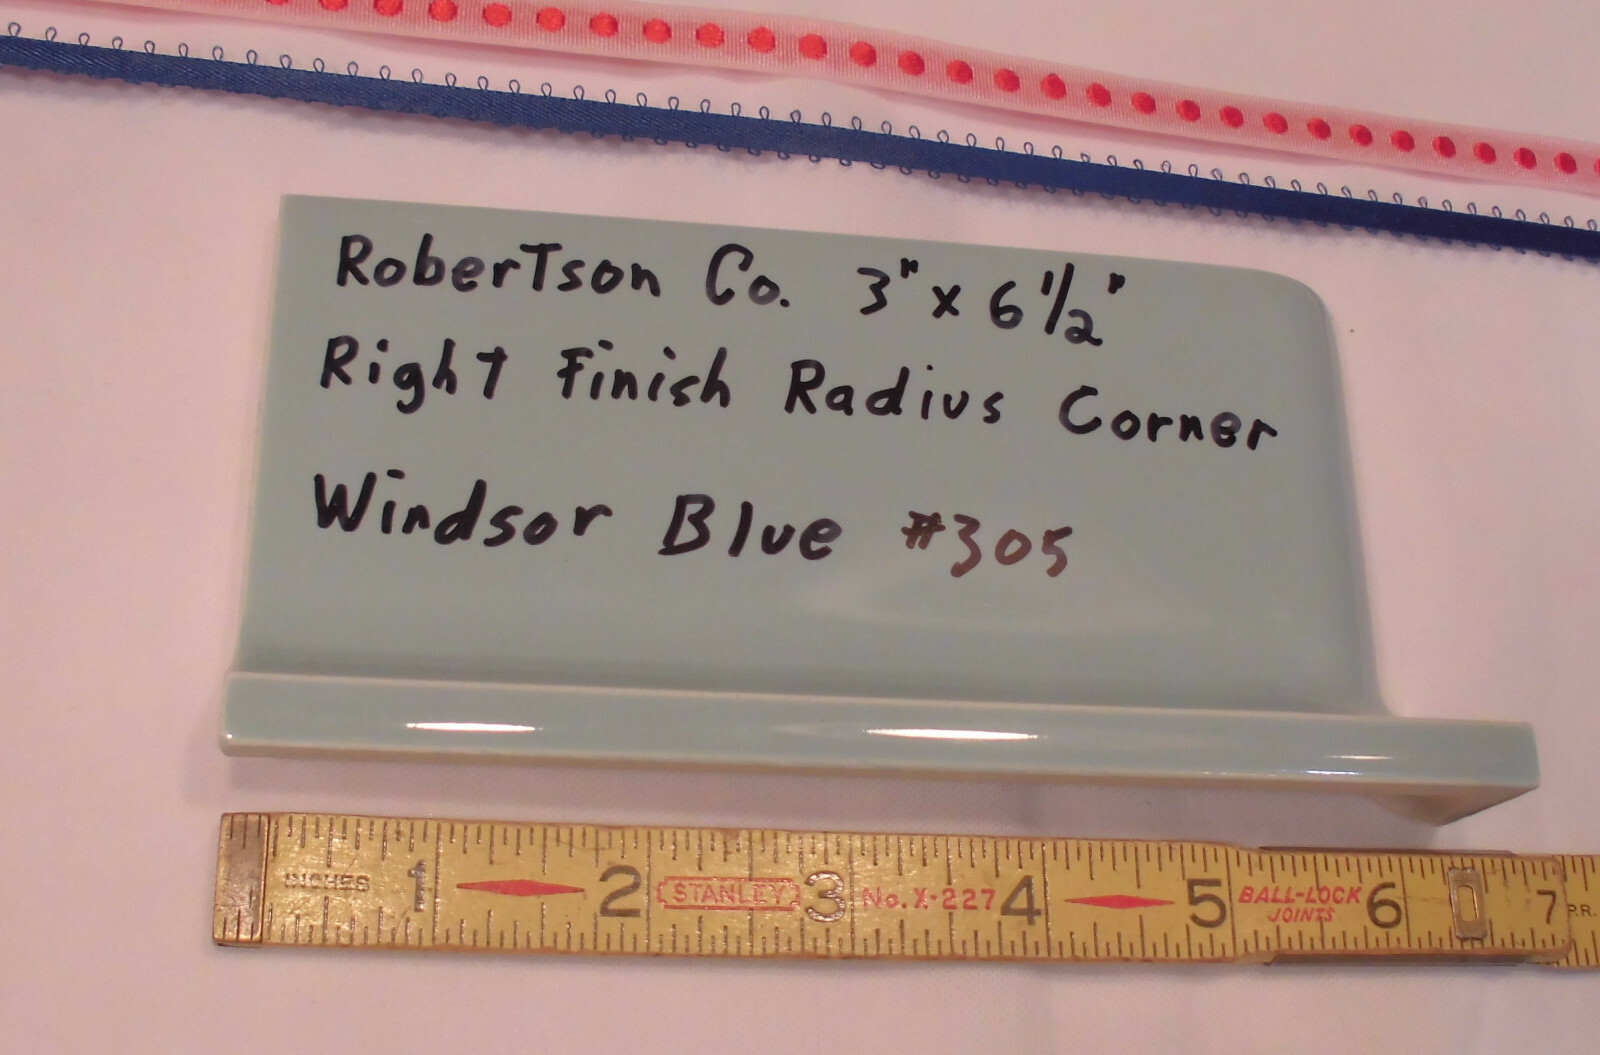 RoberTson Co. 3" x 6 1/2"
Right Finish Radius Corner
Windsor Blue #305
INCHES 1 2 STANLEY 3 No. X-227 4 5 BALL-LOCK JOINTS 6 7 P.R.